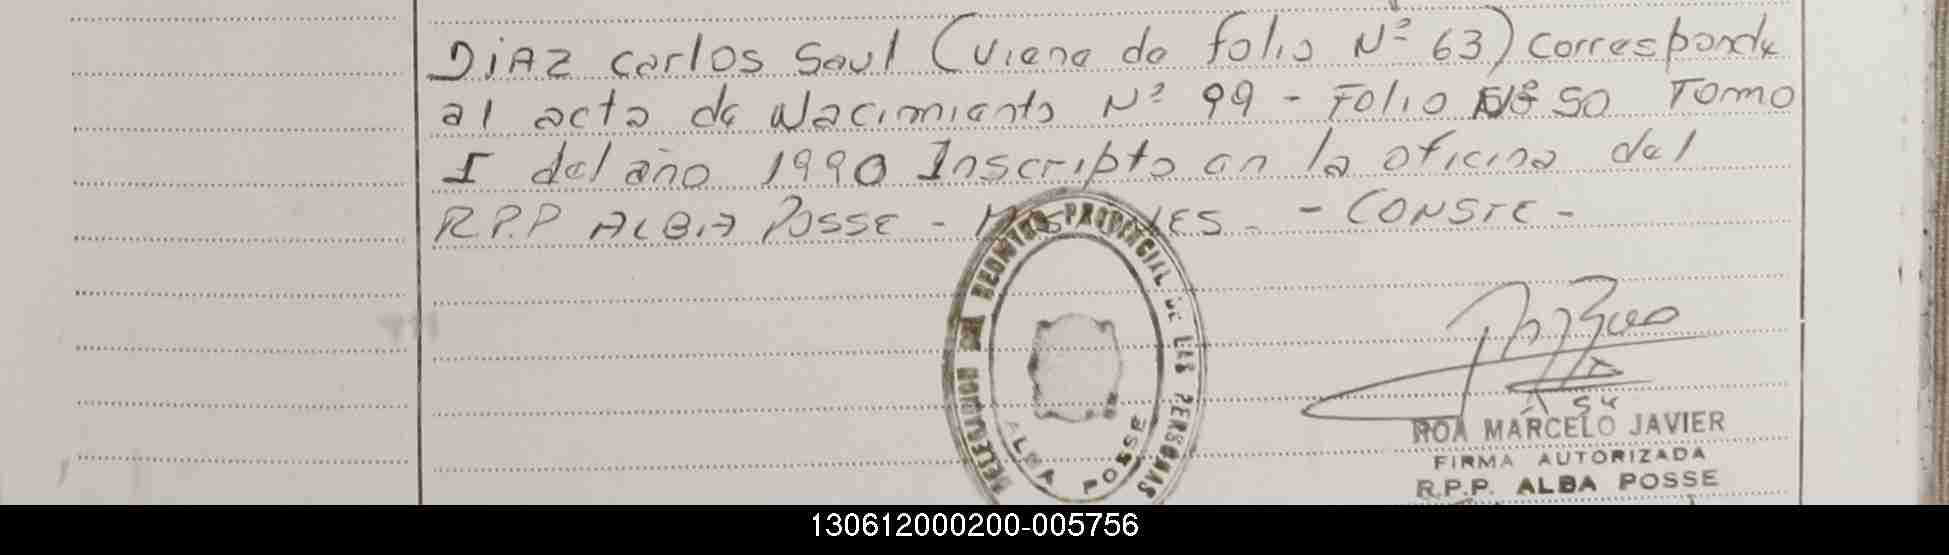 DiAZ Carlos Saul (Viene de folio Nº 63) corresponde
al acta de Nacimiento Nº 99 - Folio Nº 50 Tomo
I del año 1990 Inscripto en la oficina del
R.P.P ALBA POSSE - MISIONES. - CONSTE -
DELEGACION DE REGISTRO PROVINCIAL DE LAS PERSONAS
ALBA POSSE
ROA MARCELO JAVIER
FIRMA AUTORIZADA
R.P.P. ALBA POSSE
130612000200-005756